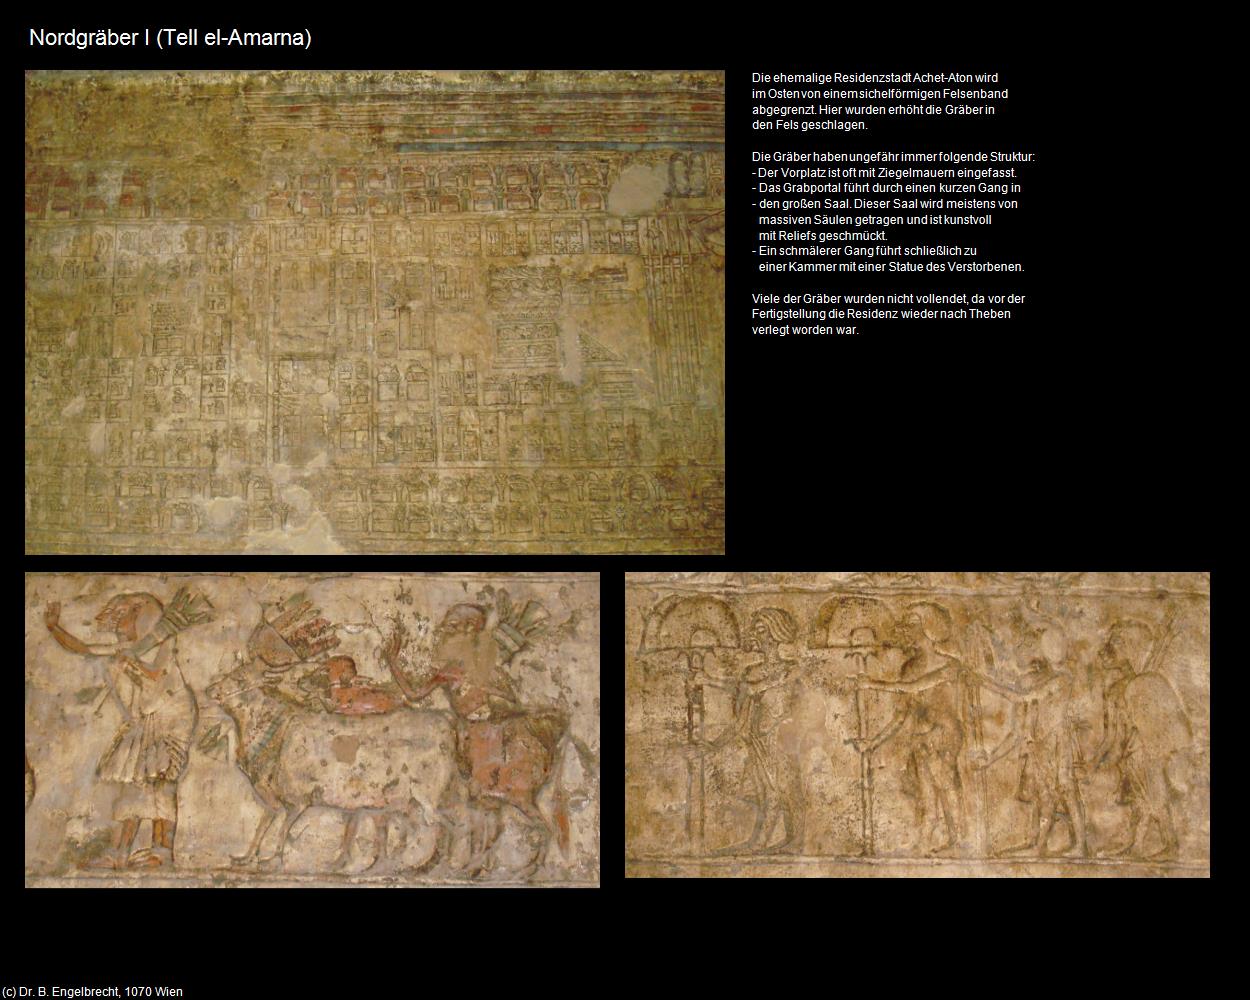 Nordgräber I (Tell el-Amarna)
Die ehemalige Residenzstadt Achet-Aton wird
im Osten von einem sichelförmigen Felsenband
abgegrenzt. Hier wurden erhöht die Gräber in
den Fels geschlagen.
Die Gräber haben ungefähr immer folgende Struktur:
- Der Vorplatz ist oft mit Ziegelmauern eingefasst.
- Das Grabportal führt durch einen kurzen Gang in
- den großen Saal. Dieser Saal wird meistens von
massiven Säulen getragen und ist kunstvoll
mit Reliefs geschmückt.
- Ein schmälerer Gang führt schließlich zu
einer Kammer mit einer Statue des Verstorbenen.
Viele der Gräber wurden nicht vollendet, da vor der
Fertigstellung die Residenz wieder nach Theben
verlegt worden war.
(c) Dr. B. Engelbrecht, 1070 Wien